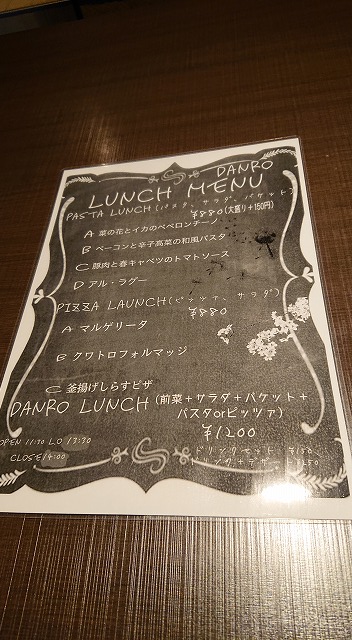 DANRO
LUNCH MENU
PASTA LUNCH (パスタ、サラダ、バケット)
¥880(大盛り+150円)
A 菜の花とイカのペペロンチーノ
B ベーコンと辛子高菜の和風パスタ
C 豚肉と春キャベツのトマトソース
D アル・ラグー
PIZZA LAUNCH (ピッツァ、サラダ)
¥880
A マルゲリータ
B クワトロフォルマッジ
C 釜揚げしらすピザ
DANRO LUNCH (前菜+サラダ+バケット+
パスタorピッツァ)
¥1200
OPEN 11:30 LO 13:30
CLOSE 14:00
ドリンクセット ¥150